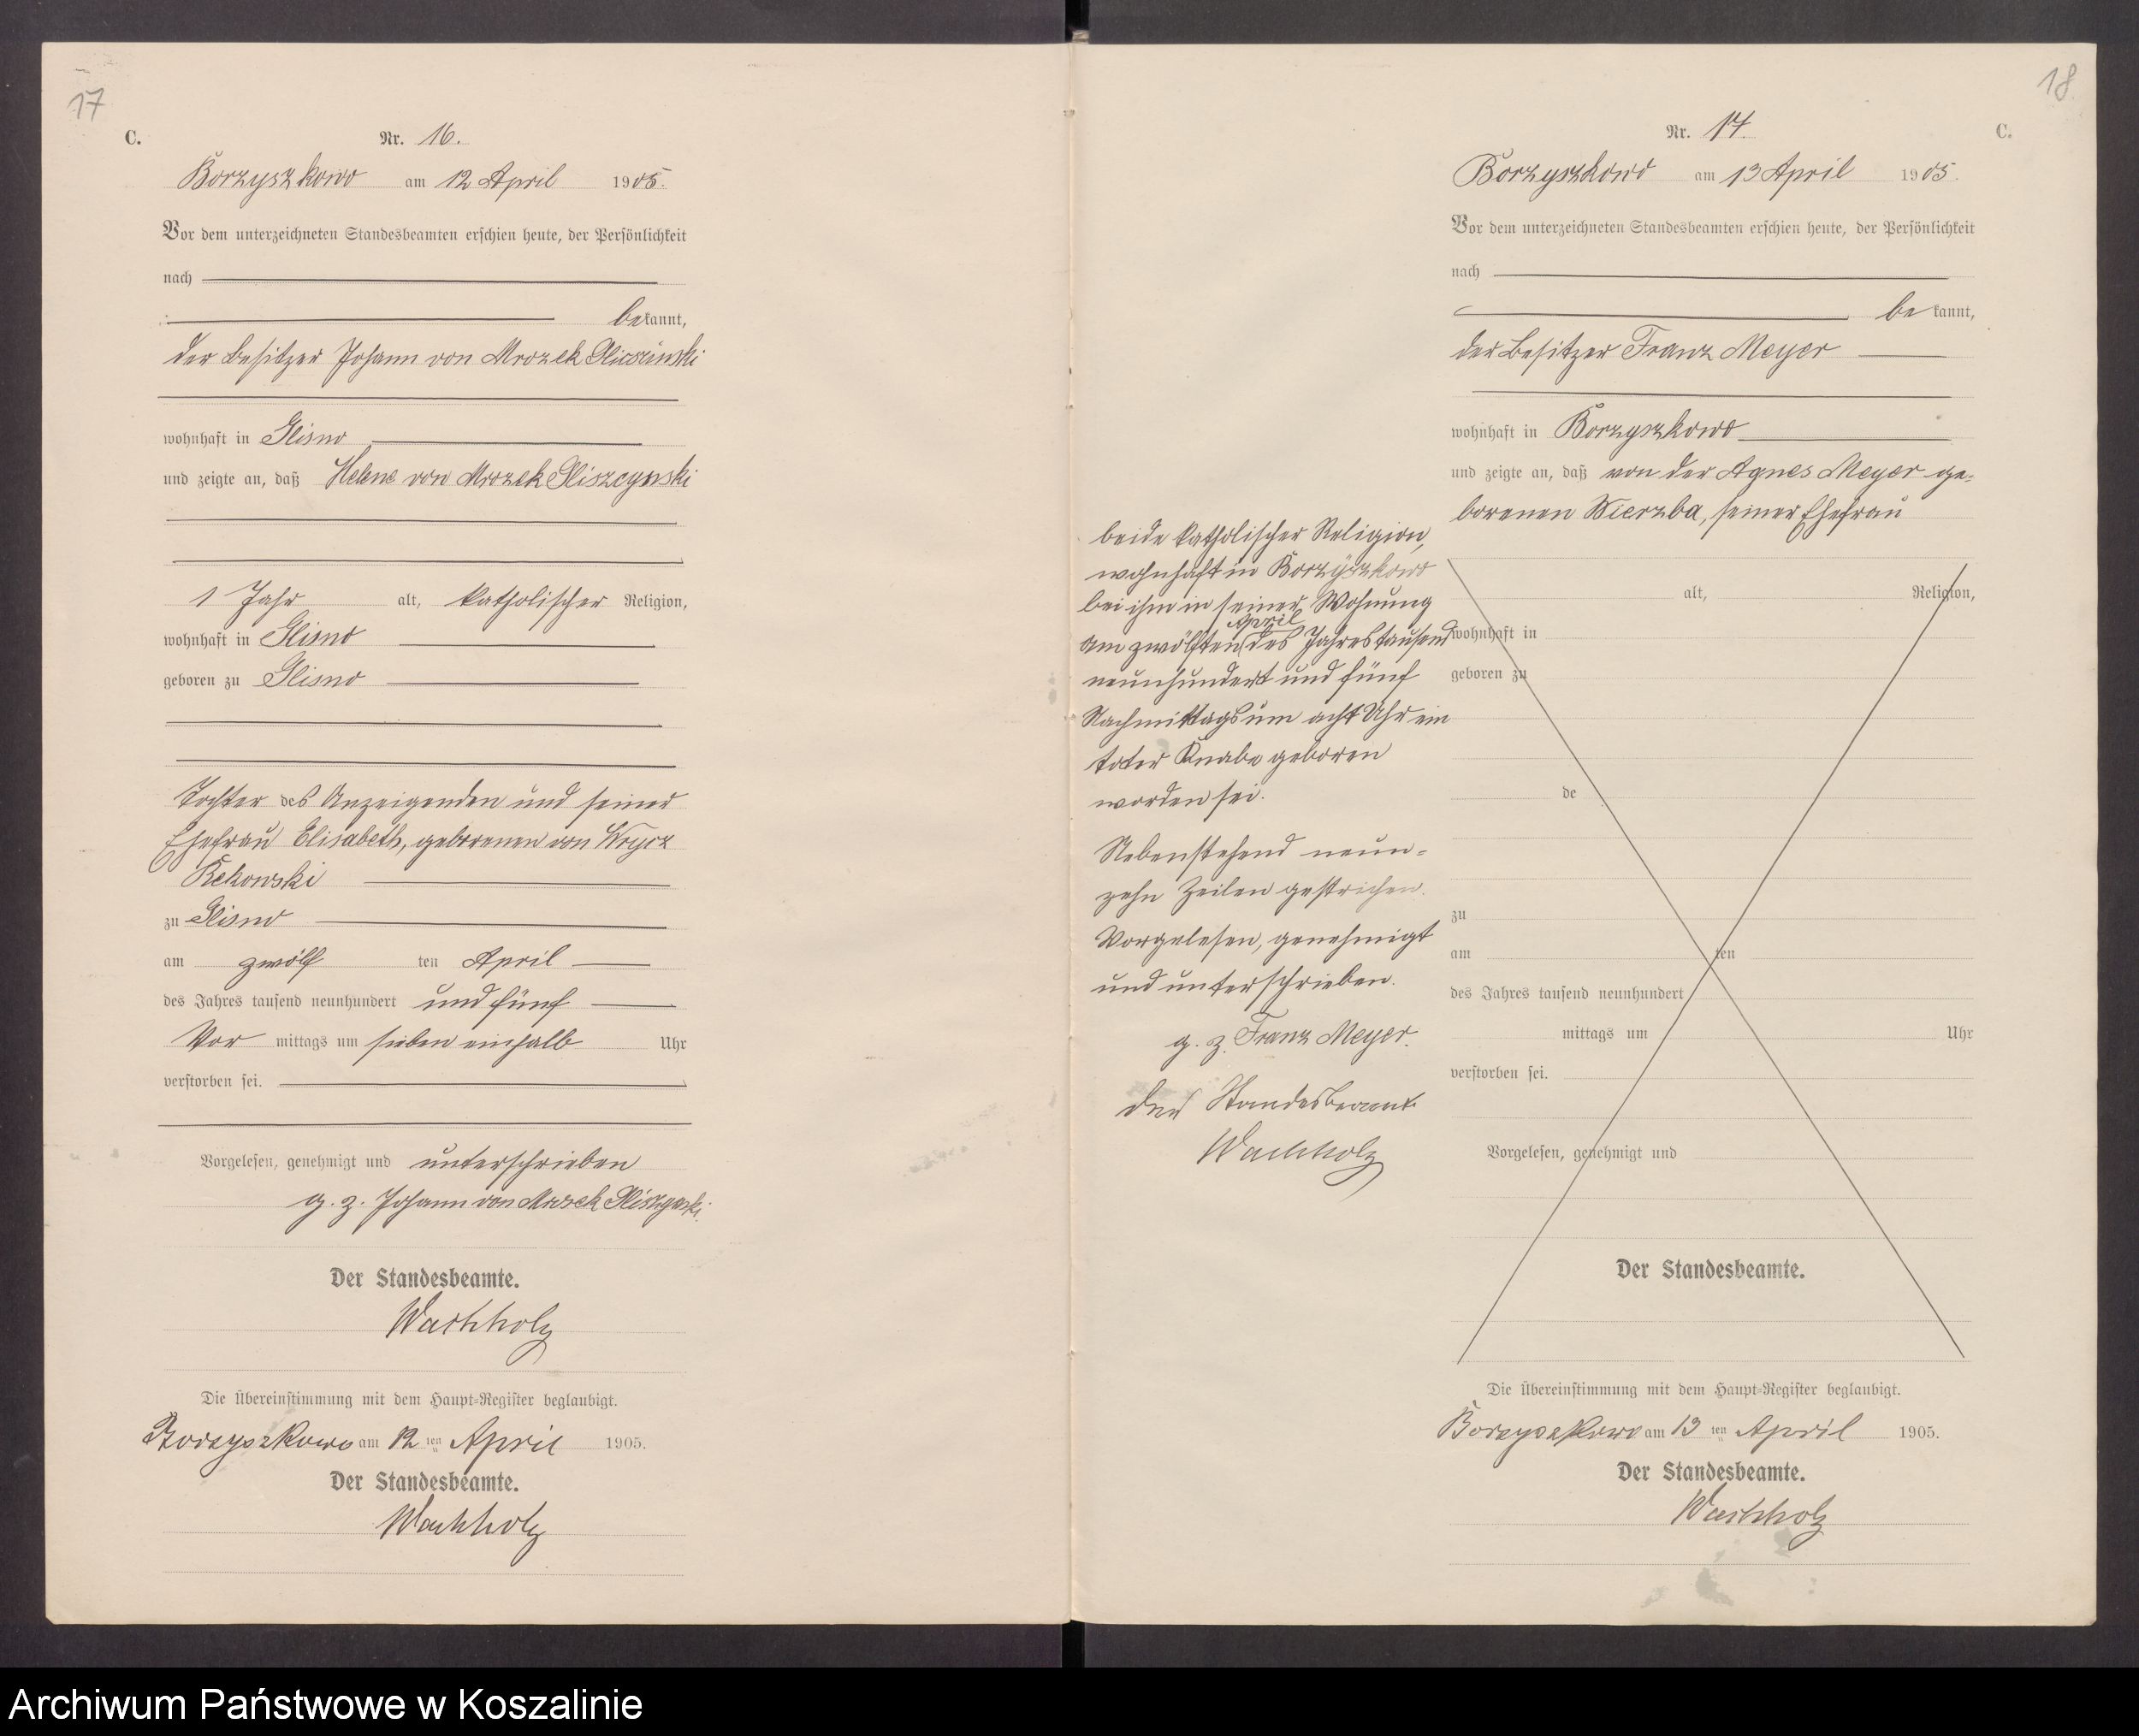 17
C.
Nr. 16.
Borzyszkowo am 12 April 1905.
Vor dem unterzeichneten Standesbeamten erschien heute, der Persönlichkeit
nach
bekannt,
der Besitzer Johann von Mrozek Gliszinski
wohnhaft in Glisno
und zeigte an, daß Helene von Mrozek Gliszcynski
1 Jahr alt, katholischer Religion,
wohnhaft in Glisno
geboren zu Glisno
Tochter des Anzeigenden und seiner
Ehefrau Elisabeth, geborenen von Wrycz
Rekowski
zu Glisno
am zwölf ten April
des Jahres tausend neunhundert und fünf
Vor mittags um sieben einhalb Uhr
verstorben sei.
Vorgelesen, genehmigt und unterschrieben
g. z. Johann von Mrozek
Der Standesbeamte.
Wachholz
Die Übereinstimmung mit dem Haupt-Register beglaubigt.
Borzyszkowo am 12 ten April 1905.
Der Standesbeamte.
Wachholz
18
Nr. 17.
C.
Borzyszkowo am 13 April 1905.
Vor dem unterzeichneten Standesbeamten erschien heute, der Persönlichkeit
nach
bekannt,
der Besitzer Franz Meyer
wohnhaft in Borzyszkowo
und zeigte an, daß von der Agnes Meyer ge=
borenen Wierzba, seiner Ehefrau
beide katholischer Religion,
wohnhaft in Borzyszkowo
bei ihm in seiner Wohnung
April
am zwölften des Jahres tausend
neunhundert und fünf
Nachmittags um acht Uhr ein
toter Knabe geboren
worden sei.
Nebenstehend neun=
zehn Zeilen gestrichen.
Vorgelesen, genehmigt
und unterschrieben.
g. z. Franz Meyer.
Der Standesbeamte
Wachholz
alt, Religion,
wohnhaft in
geboren zu
de
zu
am ten
des Jahres tausend neunhundert
mittags um Uhr
verstorben sei.
Vorgelesen, genehmigt und
Der Standesbeamte.
Die Übereinstimmung mit dem Haupt=Register beglaubigt.
Borzyszkowo am 13 ten April 1905.
Der Standesbeamte.
Wachholz
Archiwum Państwowe w Koszalinie